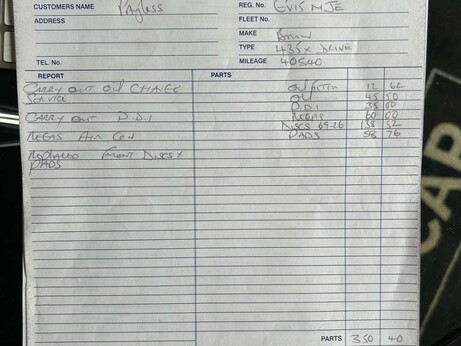 CUSTOMERS NAME Payless
REG. No. EV15 NJE
FLEET No.
ADDRESS
MAKE Bmw
TYPE 435x DRIVE
TEL. No.
MILEAGE 40540
REPORT PARTS
CARRY OUT OIL CHANGE OIL FILTER 12 62
SERVICE OIL 45 50
P.D.I 35 00
CARRY OUT P.D.I REGAS 60 00
DISCS 69-26 138 52
REGAS AIR CON PADS 58 76
REPLACED FRONT DISCS +
PADS
PARTS 350 40
CAB